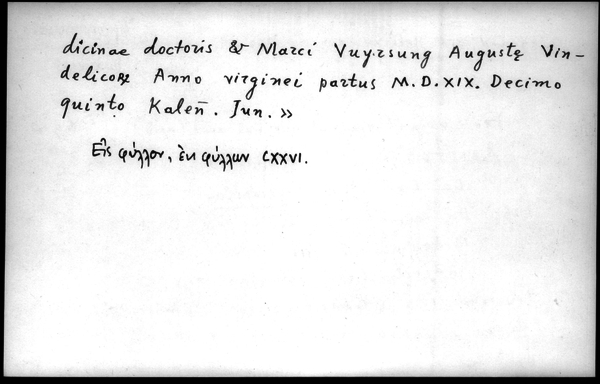 dicinae doctoris & Marci Vuyrsung Augustę Vin-
delicoꝝ Anno virginei partus M.D.XIX. Decimo
quinto Kaleñ. Jun. »
Εἰς φύλλον, ἐκ φύλλων CXXVI.